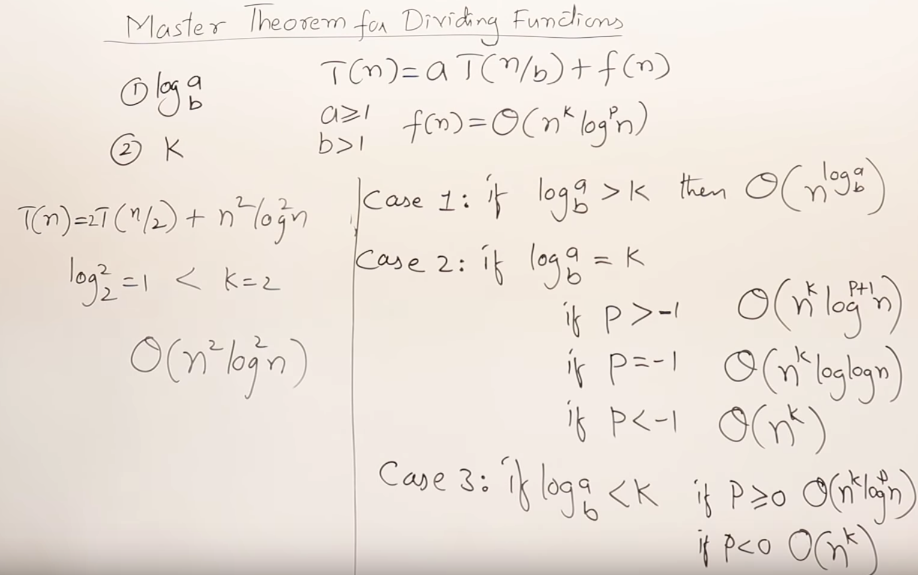 Master Theorem for Dividing Functions
① log_b^a
② K
T(n) = a T(n/b) + f(n)
a≥1
b>1
f(n) = Θ(n^k log^p n)
T(n)=2T(n/2) + n^2 log^2 n
log_2^2 = 1 < K=2
Θ(n^2 log^2 n)
Case 1: if log_b^a > K then Θ(n^{log_b^a})
Case 2: if log_b^a = K
if P>-1 Θ(n^k log^{P+1} n)
if P=-1 Θ(n^k loglogn)
if P<-1 Θ(n^k)
Case 3: if log_b^a < K if P≥0 Θ(n^k log^p n)
if P<0 Θ(n^k)